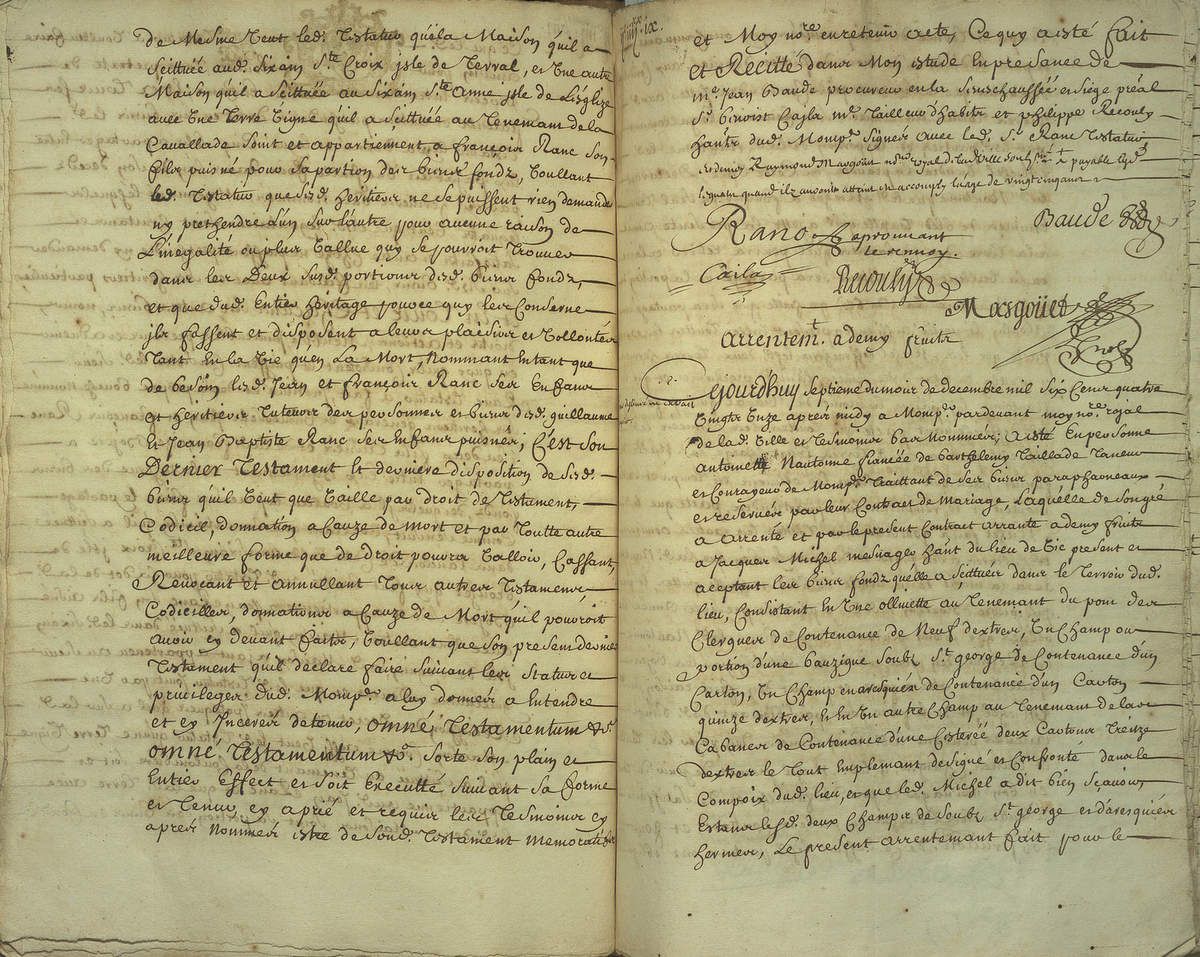 De Mesme Veut led. Testateur quela Maison quil a
scittuée aud. Sixain Ste Croix jsle de Verval, et Une autre
Maison quil a scittuée au Sixain Ste Anne jsle de L'église
avec Une Terre Vigne quil a scittuée au Tenemant de la
Cavallade Soint et appartienent a françois Ranc Son
fils puisné pour sa portion des biens fondz, Voullant
led. Testateur que sesd. Heritiers ne se puissent rien demander
ny prethendre L'un sur L'autre pour aucune raison de
L'inegalité ou plus Vallue quy se pourroit Trouver
dans les Deux susd. portions desd. biens fondz,
et que dud. Entier Heritage pour ce quy les Conserne
jls fassent et disposent a leurs plaisirs et Vollontés
Tant En la Vie qu'en La Mort, Nommant En tant que
de besoin lesd. Jean et françois Ranc Ses Enfans
et Heritiers Tuteurs des personnes et biens desd. guillaume
et Jean Baptiste Ranc Ses Enfans puisnés; C'est Son
Dernier Testament Et derniere disposition de Sesd.
biens qu'il Veut que Vaille par droit de Testament,
Codicil, donnation a Cauze de mort et par Toutte autre
meilleure forme que de droit pourra Valloir, Cassant,
Revocant et annullant Tous autres Testamens
Codicilles, donnations a Cauze de Mort qu'il pourroit
avoir cy devant faitz, Voullant que Son present dernier
Testament qu'il declare faire suivant les Statuz et
privileges dud. Mompr. a luy donnés a Entendre
et cy Inserés de tenur, omné Testamentum &c.
omné Testamentum &c. Sorte Son plain et
Entier Effect et soit Executté suivant sa forme
et Teneur, et aprié et requis les Tesmoins cy
apres Nommés estre de Sond. Testament memoratifz
et Moy nore. en retenir acte, Ce quy a esté fait
et Recitté dans Mon estude En presance de
mr. Jean Baude procureur en la Seneschaussée et Siége préal
Sr. benoist Cajla mr. Tailleur d'habitz et philippe Recouly
hantz dud. Mompr. Signés avec led. Sr. Ranc Testateur
et de moy Raymond Masgoüet nore. royal
legueur quand ilz auront attaint et accomply laage de vingt cinq ans
Ranc approuvant
le renvoy.
Baude
Caila
Recouly
Masgoüet
Arrentemt. a demy fruitz
Cejourdhuy Septieme du mois de decembre mil Six Cens quatre
Vingtz Unze apres midy a Mompr. pardevant moy nore. rojal
de lad. Ville et Tesmoins bas Nommés; a esté En personne
antoinette Nautonne fiancée de barthelemy Taillade Taneur
et Courayeur de Mompr. Traittant de ses biens paraphernaux
et reservés par leur Contract de Mariage, Laquelle de Son gré
a arrenté et par le present Contract arrante a demy fruitz
a Jacques Michel mesnager hant du lieu de Vic present et
aceptant les biens fondz qu'elle a Scittués dans le Terroir dud.
lieu, Consistant En Une ollivette au Tenemant du pour des
Clerques de Contenance de Neuf dextres, Un Champ ou
portion d'une bauzique Soubz St. george de Contenance d'un
Carton, Un Champ en aresquiés de Contenance d'un Carton
quinze dextres, Et En Un autre Champ au Tenemant de las
Cabanes de Contenance d'une Cesterée deux Cartons Treize
dextres le Tout Emplemant designé et Confronté dans le
Compoix dud. lieu, et que led. Michel a dit bien Sçavoir,
Estans lesd. deux Champs de Soubz St. george et d'aresquiés
hermes, Le present arrentemant fait pour le